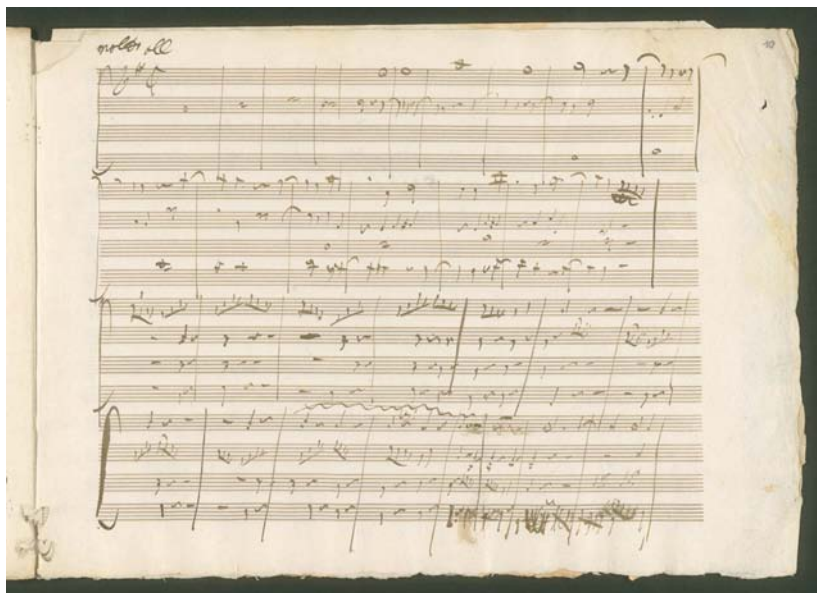 molto all
10